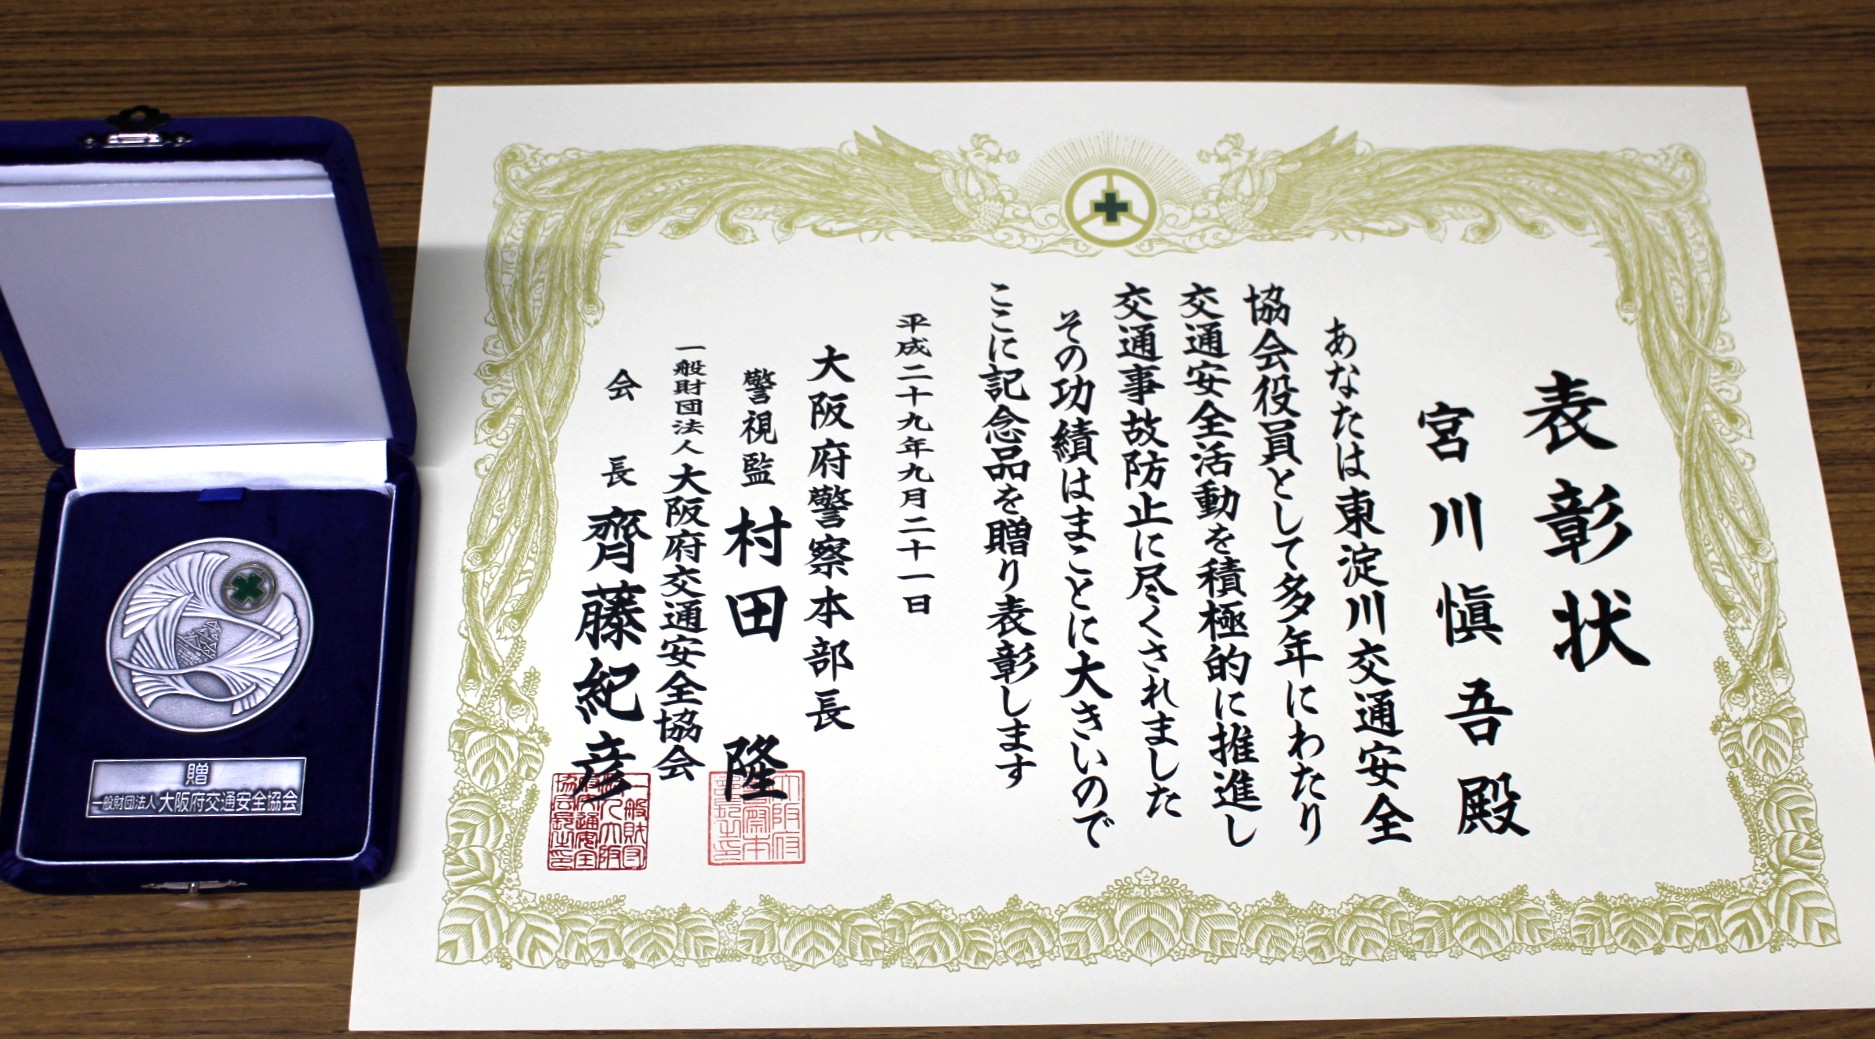 表彰状
宮川愼吾殿
あなたは東淀川交通安全
協会役員として多年にわたり
交通安全活動を積極的に推進し
交通事故防止に尽くされました
その功績はまことに大きいので
ここに記念品を贈り表彰します
平成二十九年九月二十一日
大阪府警察本部長
警視監 村田 隆
一般財団法人 大阪府交通安全協会
会長 齊藤紀彦
贈
一般財団法人 大阪府交通安全協会